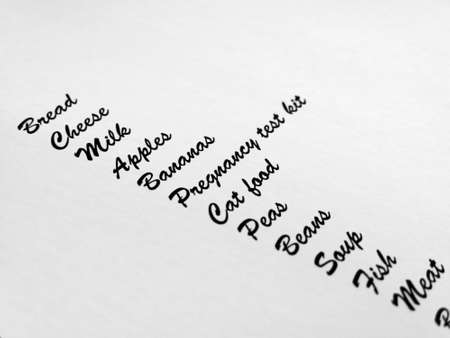 Bread
Cheese
Milk
Apples
Bananas
Pregnancy test kit
Cat food
Peas
Beans
Soup
Fish
Meat